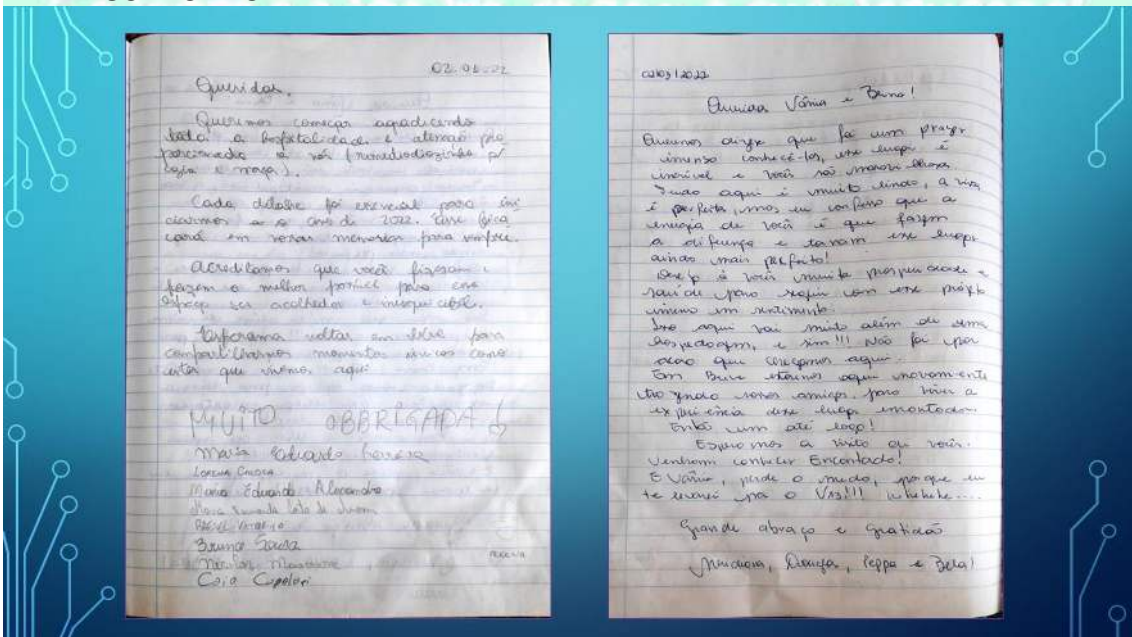 02-01-22
Queridos,
Queremos começar agradecendo
toda a hospitalidade e atenção pro
porcionada a nós
Cada detalhe foi essencial para ini
ciarmos o ano de 2022. Esse
cará em nossas memórias para sempre.
Acreditamos que vocês fizeram e
fazem o melhor possível para esse
espaço ser acolhedor e inesquecível.
voltar em breve para
compartilharmos momentos únicos como
estes que vivemos aqui
MUITO OBBRIGADA
Maria Eduarda
Maria Eduarda Alexandre
Bruno Souza
Caio
02/03/2022
Vânia e
Queremos dizer que foi um prazer
imenso conhecê-los, esse lugar é
incrível e vocês são maravilhosos
Tudo aqui é muito lindo, a vista
é perfeita, mas eu confesso que a
energia de vocês é que fazem
a diferença e tornam esse lugar
ainda mais perfeito!
Desejo à vocês muita prosperidade e
saúde para seguir com esse projeto
imenso em sentimento.
Isso aqui vai muito além de uma
hospedagem, e sim!!! Não foi por
acaso que chegamos aqui.
Em Breve estaremos aqui novamente
trazendo nossos amigos, para viver a
experiência desse lugar encantador.
Então um até logo!
Esperamos a visita de vocês.
Venham conhecer Encantado!
E Vânia, perde o medo, porque eu
te levarei pra o
Grande abraço e gratidão
Peppa e Bela!